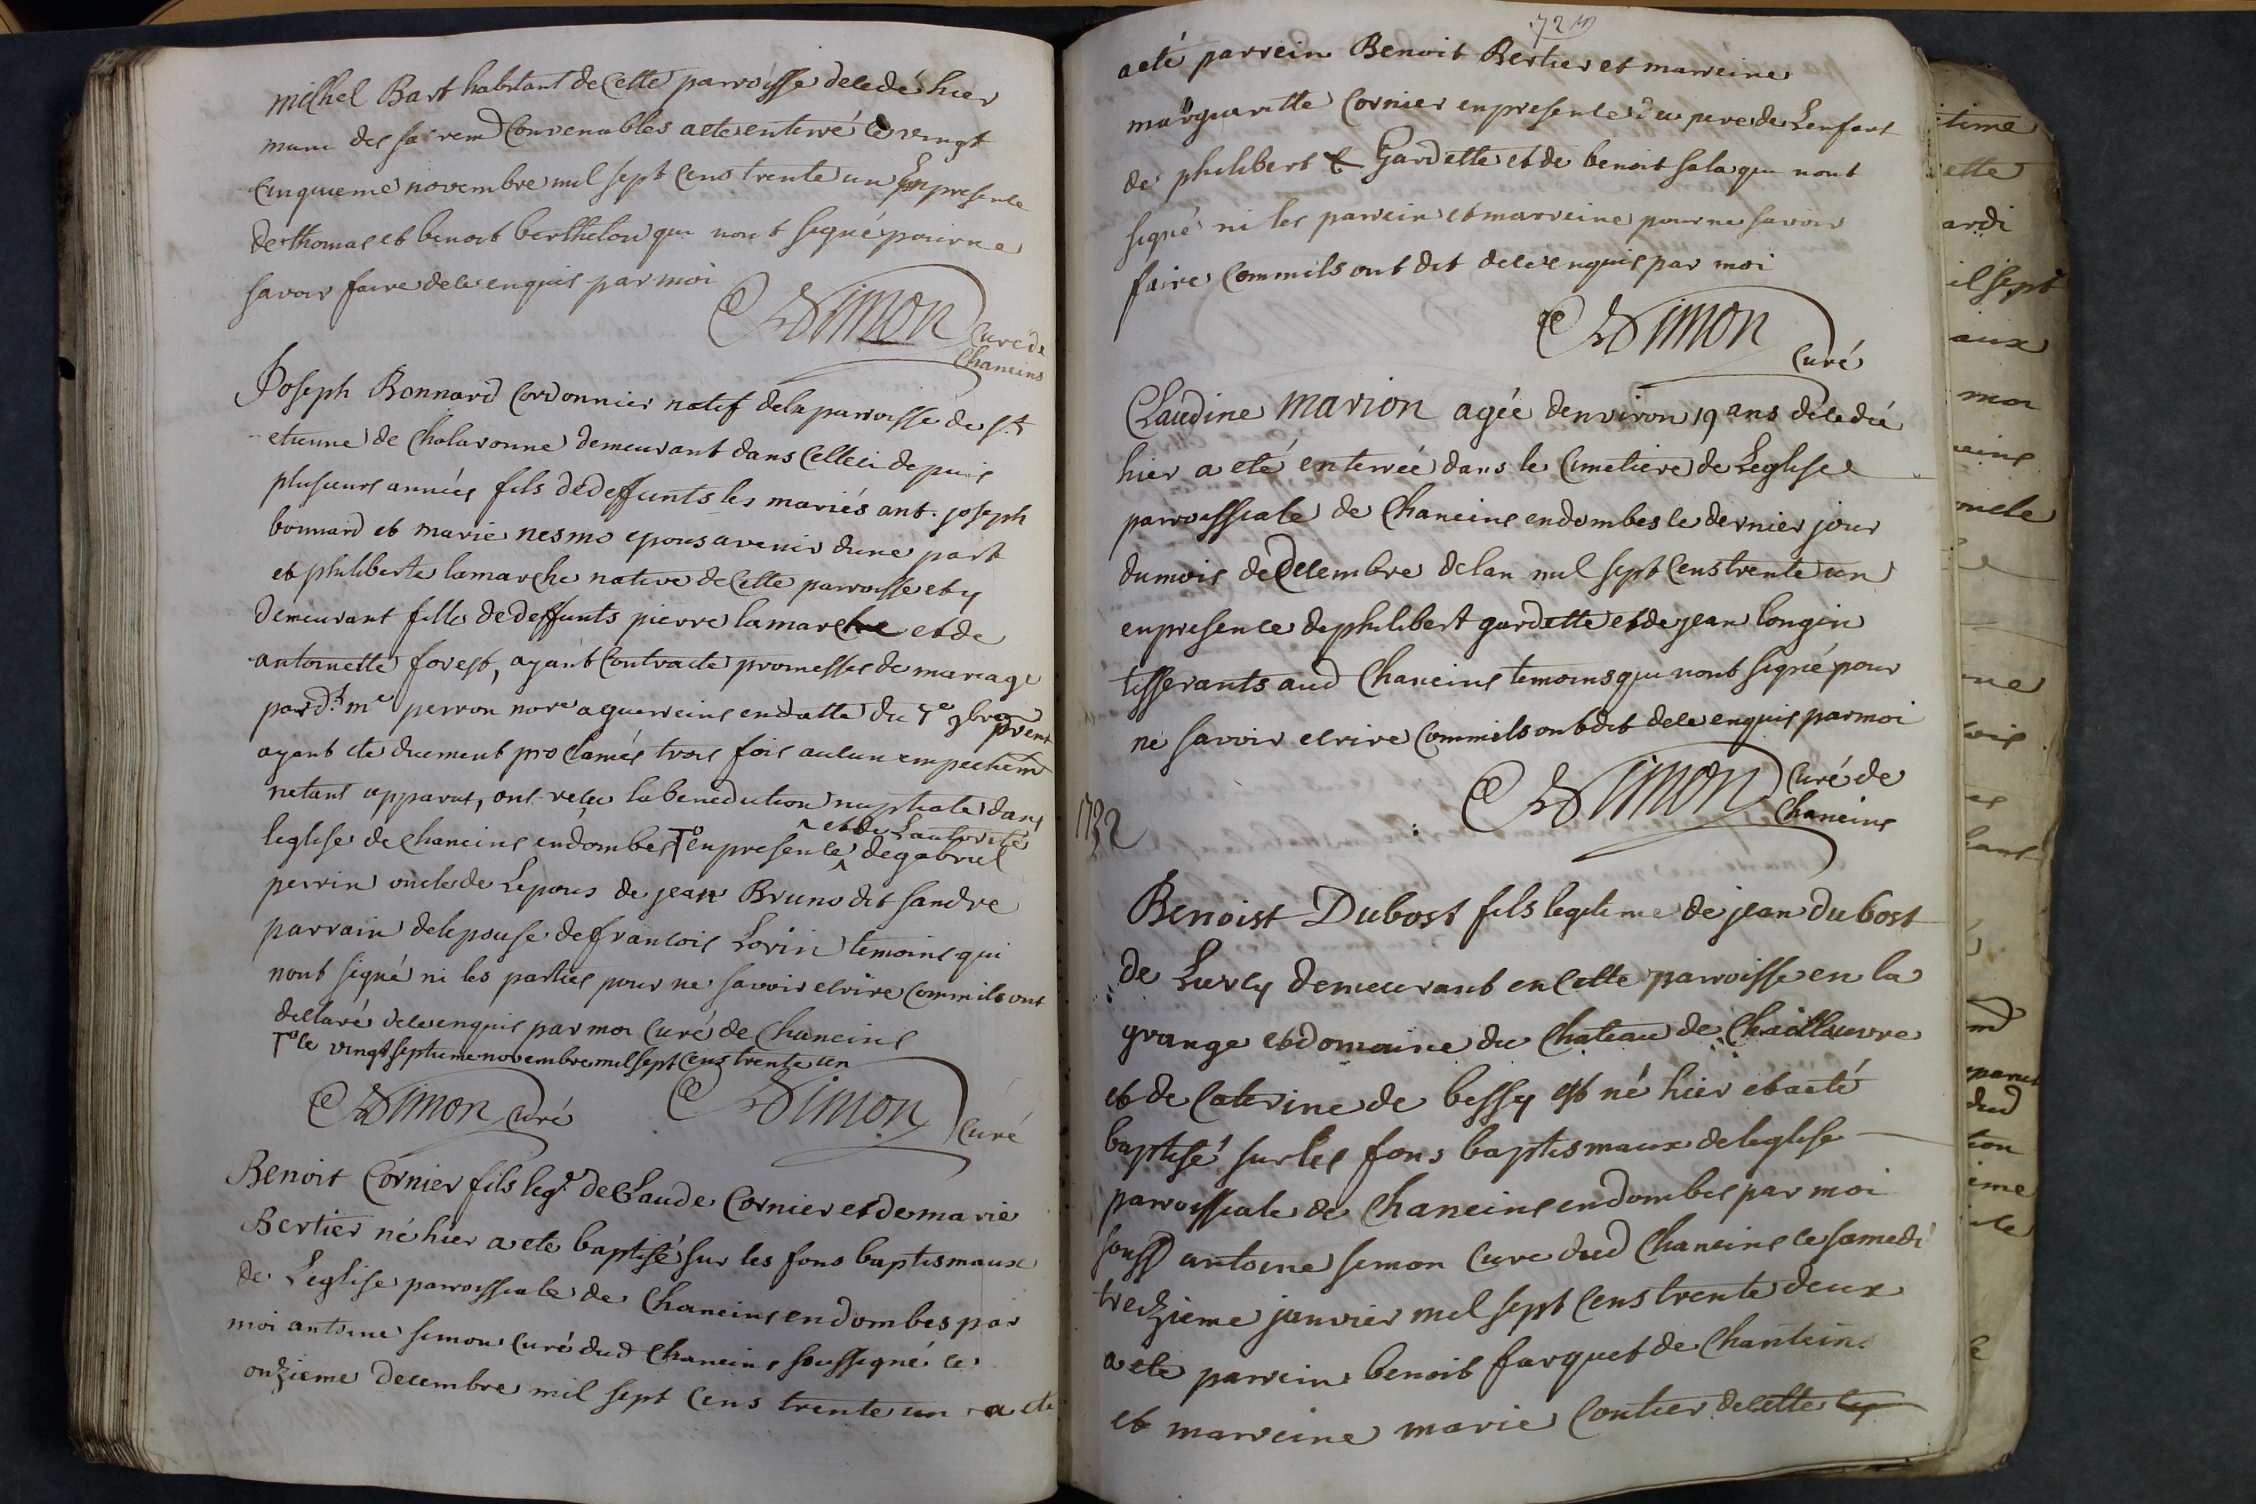 Michel Bart habitant de Cette parroisse decedé hier
muni des sacrem Convenables a ete enterré le vingt
Cinquieme novembre mil sept Cens trente un En presence
de thomas et benoit berthelon qui n'ont signé pour ne
savoir faire de ce enquis par moi
Simon Curé de
Chaneins
Joseph Bonnard Cordonnier natif de la parroisse de St
etienne de Chalaronne demeurant dans Celle ci depuis
plusieurs années fils de deffunts les mariés ant. joseph
bonnard et marie nesmo epous avenir d'une part
et philiberte lamarche native de Cette parroisse et y
demeurant fille de deffunts pierre lamarche et de
antoinette forest, ayant Contracte promesses de mariage
pard.t me perron nore a guerreins en datte du 7e 9bre prent
ayant ete duement proclamés trois fois aucun empechemt
n'etant apparut, ont reçu la benediction nuptiale dans
leglise de Chaneins en dombes To en presence ^ et de Lautorité de gabriel
perrin oncle de Lepous de jean Bruno dit sandre
parrain de lepouse de francois Lorin temoins qui
n'ont signé ni les parties pour ne savoir ecrire Comm'ils ont
declaré de ce enquis par moi Curé de Chaneins
To le vingt septieme novembre mil sept Cens trente un
Simon Curé Simon Curé
Benoit Cornier fils leg.e de Claude Cornier et de marie
Bertier né hier a ete baptisé sur les fons baptismaux
de Leglise parroissiale de Chaneins en dombes par
moi antoine simon Curé dud Chaneins soussigné le
onzieme decembre mil sept Cens trente un a ete
72
a eté parrein Benoit Bertier et marreine
marguaritte Cornier en presence du pere de Lenfant
de philibert Gardette et de benoit sala qui n'ont
signé ni les parrein et marreine pour ne savoir
faire Comm'ils ont dit de ce enquis par moi
Simon
Curé
Claudine Marion agée denviron 19 ans decedée
hier a eté enterrée dans le Cimetiere de Leglise
parroissiale de Chaneins en dombes le dernier jour
du mois de Decembre de lan mil sept Cens trente un
en presence de philibert gardette et de jean longin
tisserants aud Chaneins temoins qui n'ont signé pour
ne savoir ecrire Comm'ils ont dit de ce enquis par moi
Simon Curé de
Chaneins
1732
Benoist Dubost fils legitime de jean dubost
de Lurcy demeurant en Cette parroisse en la
grange et domaine du Chateau de Chaillouvre
et de Caterine de bessy est né hier et a eté
baptisé sur les fons baptismaux de leglise
parroissiale de Chaneins en dombes par moi
souss antoine simon Cure dud Chaneins le samedi
treizieme janvier mil sept Cens trente deux
a ete parrein benoit farguet de Chaneins
et marreine marie Coutier de Cette